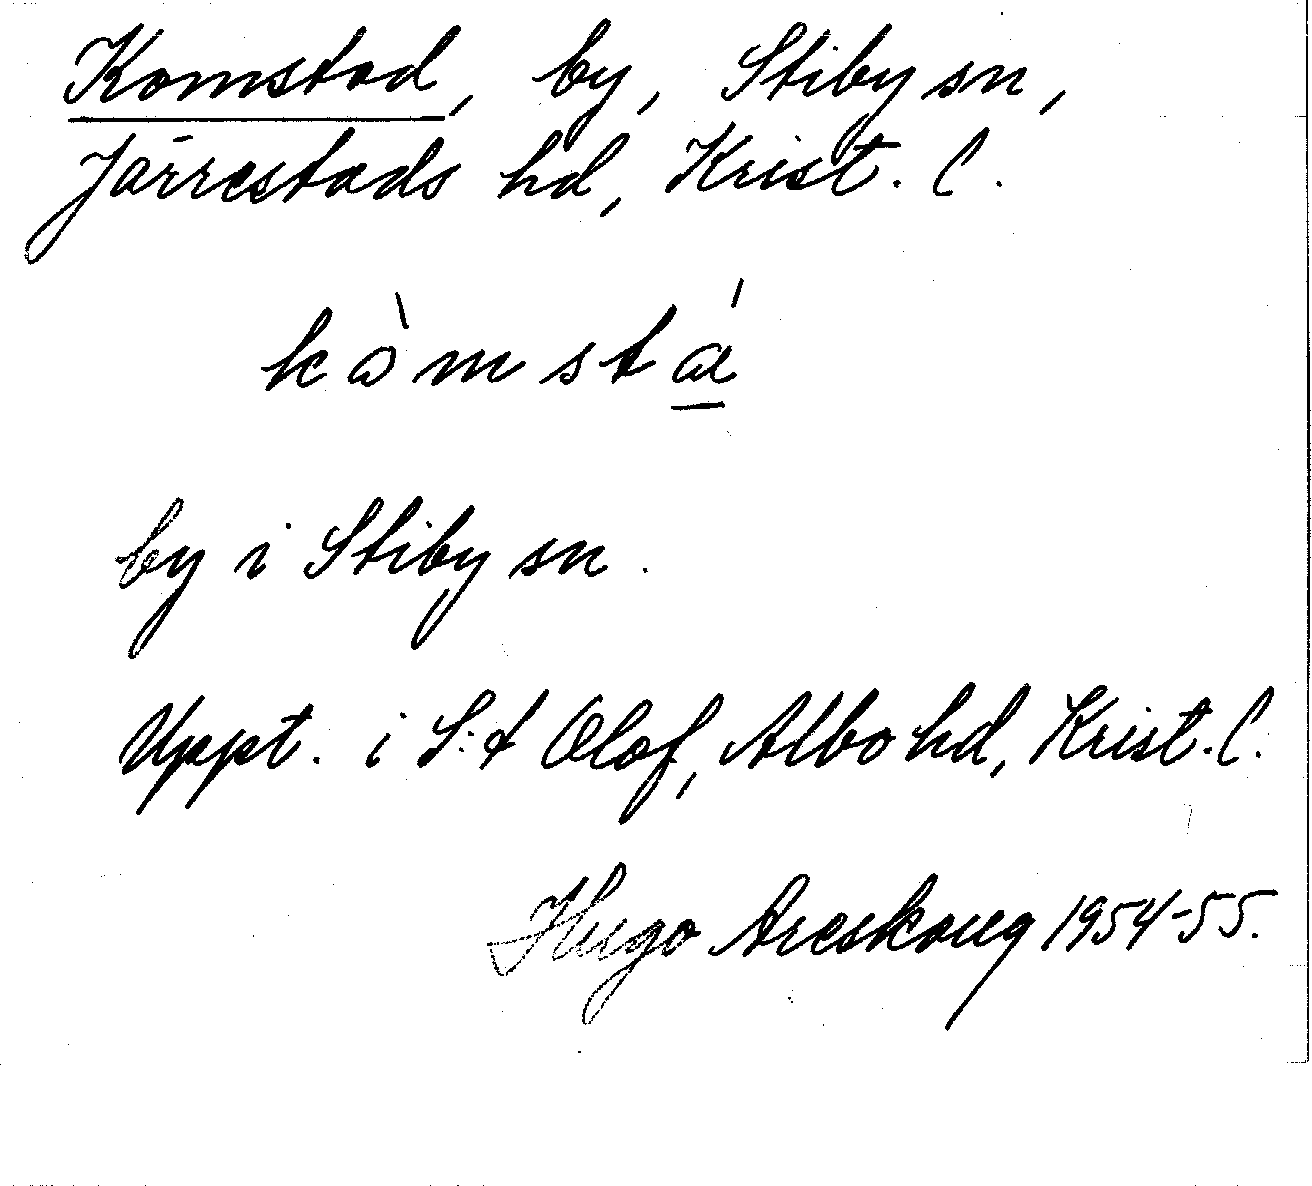 Komstad, by, Stiby sn,
Järrestads hd, Krist. l.
kòmstá
by i Stiby sn.
Uppt. i S:t Olof, Albo hd, Krist. l.
Hugo Areskoug 1954-55.